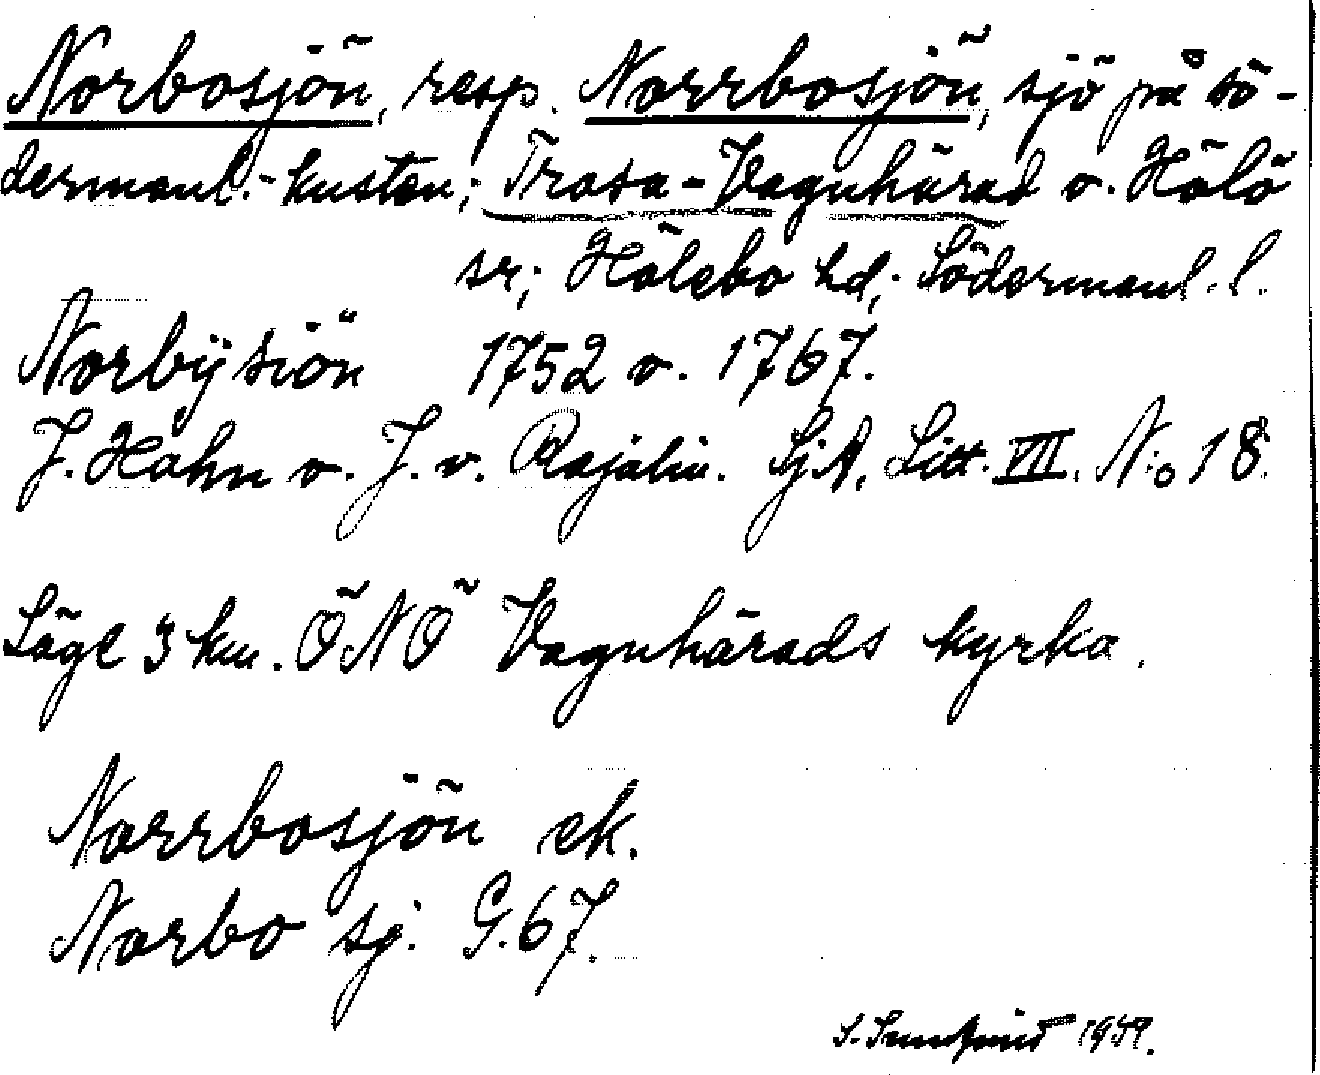 Norbosjön, resp. Norrbosjön, sjö på sö-
dermanl.-kusten; Trosa-Vagnhärad o. Hölö
sr; Hölebo hd; Södermanl. l.
Norbÿsiön 1752 o. 1767.
J. Hahn o. J. v. Rajalin. SjA, Litt. VII. N:o 18.
Läge 3 km. ÖNÖ Vagnhärads kyrka.
Norrbosjön ek.
Norbo sj. G.67.
S.